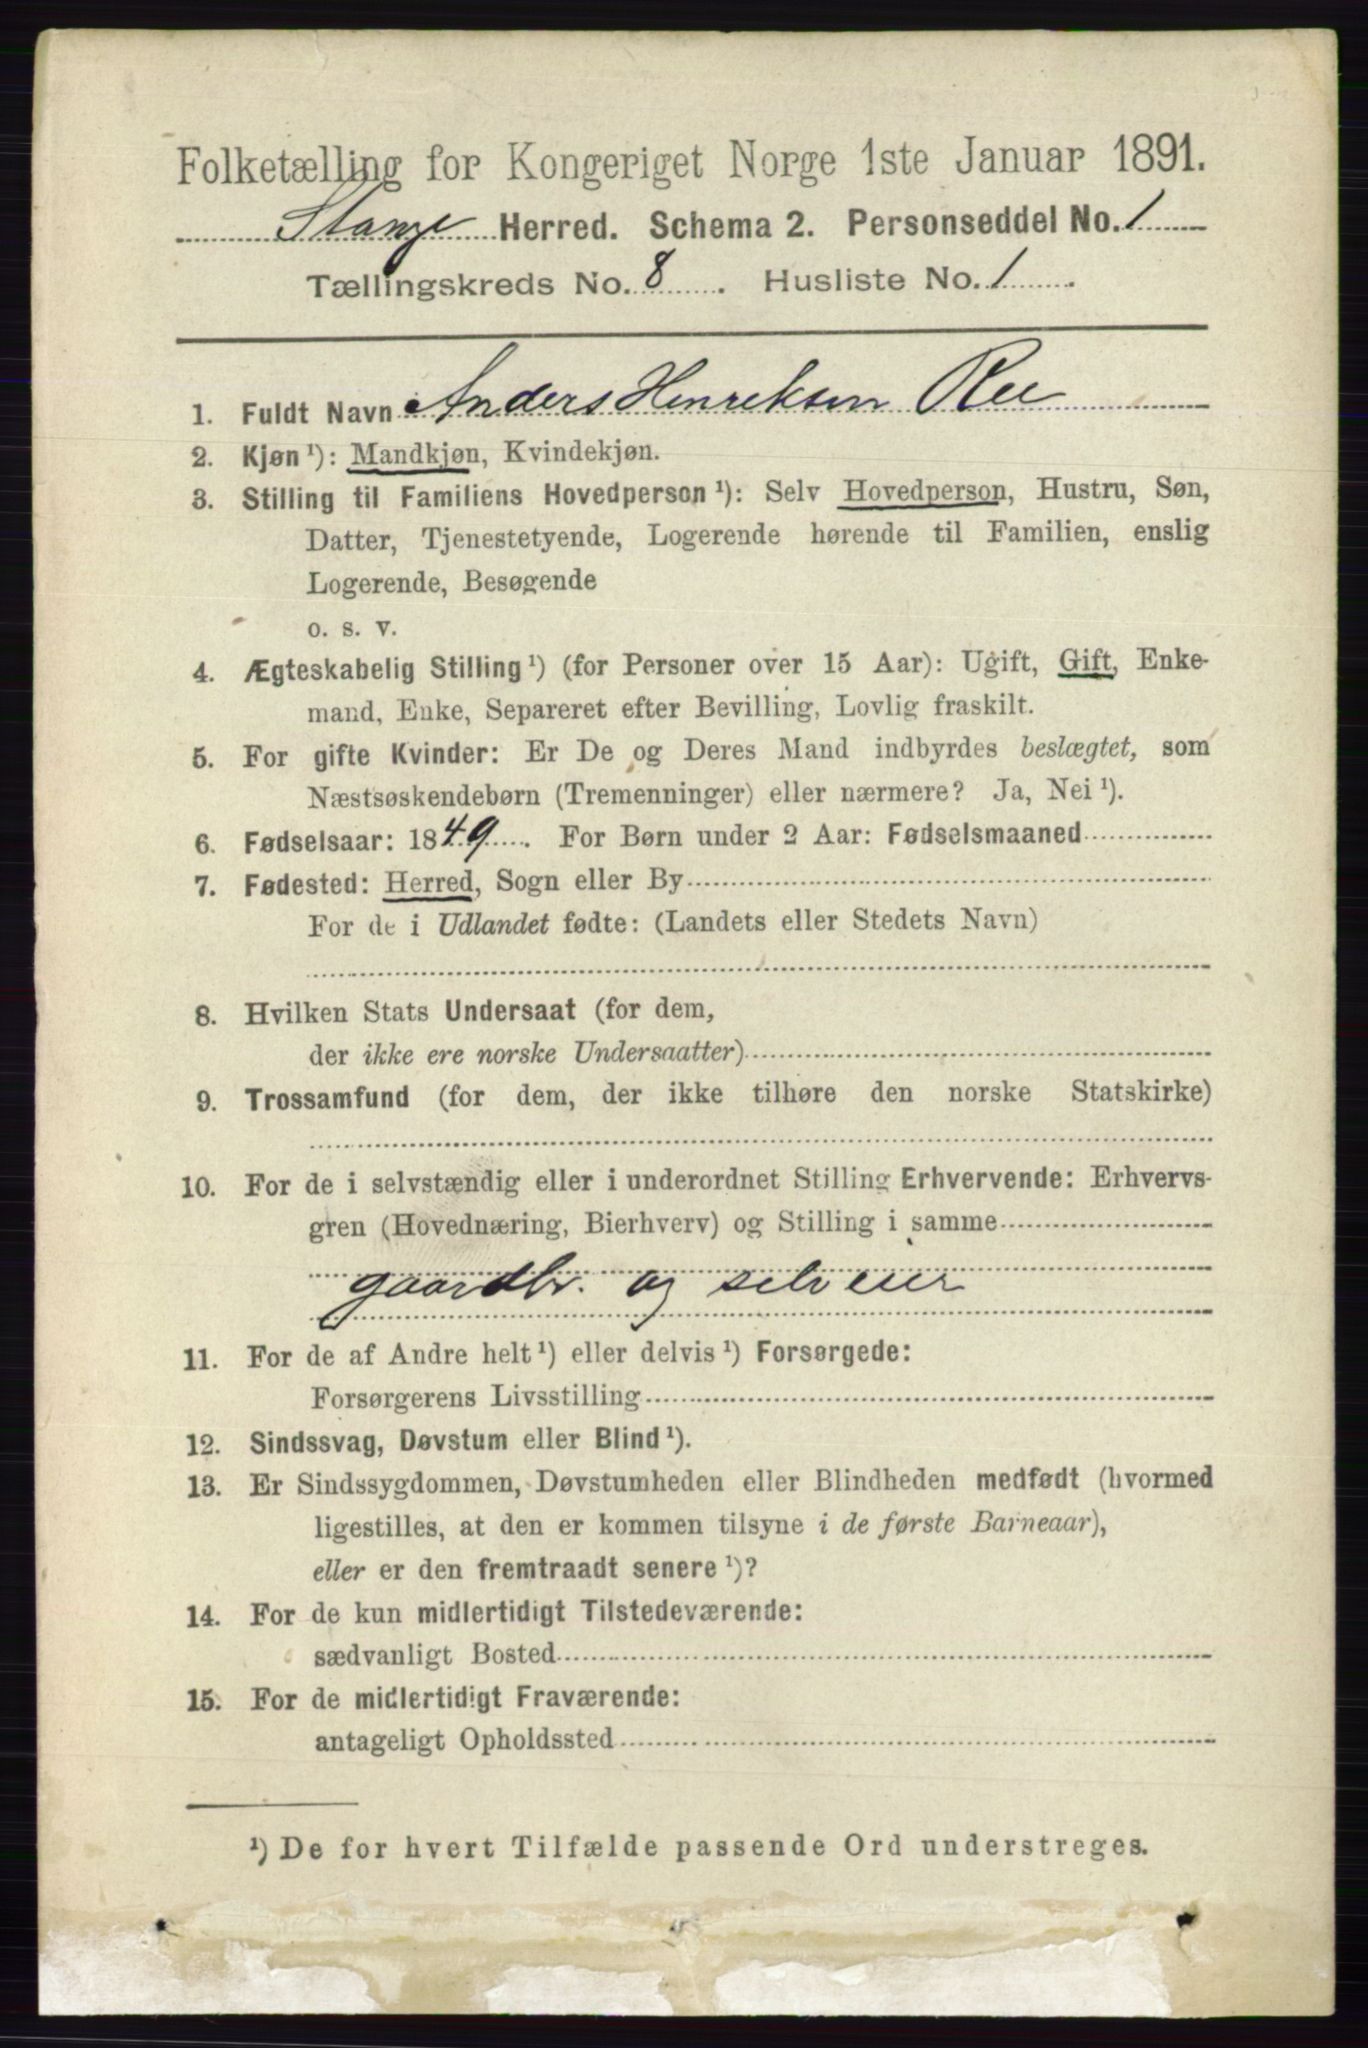 Folketælling for Kongeriget Norge 1ste Januar 1891.
Stange Herred. Schema 2. Personseddel No. 1
Tællingskreds No. 8. Husliste No. 1.
1. Fuldt Navn Anders Henriksen Ree
2. Kjøn ¹): Mandkjøn, Kvindekjøn.
3. Stilling til Familiens Hovedperson ¹): Selv Hovedperson, Hustru, Søn,
Datter, Tjenestetyende, Logerende hørende til Familien, enslig
Logerende, Besøgende
o. s. v.
4. Ægteskabelig Stilling ¹) (for Personer over 15 Aar): Ugift, Gift, Enke-
mand, Enke, Separeret efter Bevilling, Lovlig fraskilt.
5. For gifte Kvinder: Er De og Deres Mand indbyrdes beslægtet, som
Næstsøskendebørn (Tremenninger) eller nærmere? Ja, Nei ¹).
6. Fødselsaar: 1849. For Børn under 2 Aar: Fødselsmaaned
7. Fødested: Herred, Sogn eller By
For de i Udlandet fødte: (Landets eller Stedets Navn)
8. Hvilken Stats Undersaat (for dem,
der ikke ere norske Undersaatter)
9. Trossamfund (for dem, der ikke tilhøre den norske Statskirke)
10. For de i selvstændig eller i underordnet Stilling Erhvervende: Erhvervs-
gren (Hovednæring, Bierhverv) og Stilling i samme
gaardbr. og selveier
11. For de af Andre helt ¹) eller delvis ¹) Forsørgede:
Forsørgerens Livsstilling
12. Sindssvag, Døvstum eller Blind ¹).
13. Er Sindssygdommen, Døvstumheden eller Blindheden medfødt (hvormed
ligestilles, at den er kommen tilsyne i de første Barneaar),
eller er den fremtraadt senere ¹)?
14. For de kun midlertidigt Tilstedeværende:
sædvanligt Bosted
15. For de midlertidigt Fraværende:
antageligt Opholdssted
¹) De for hvert Tilfælde passende Ord understreges.